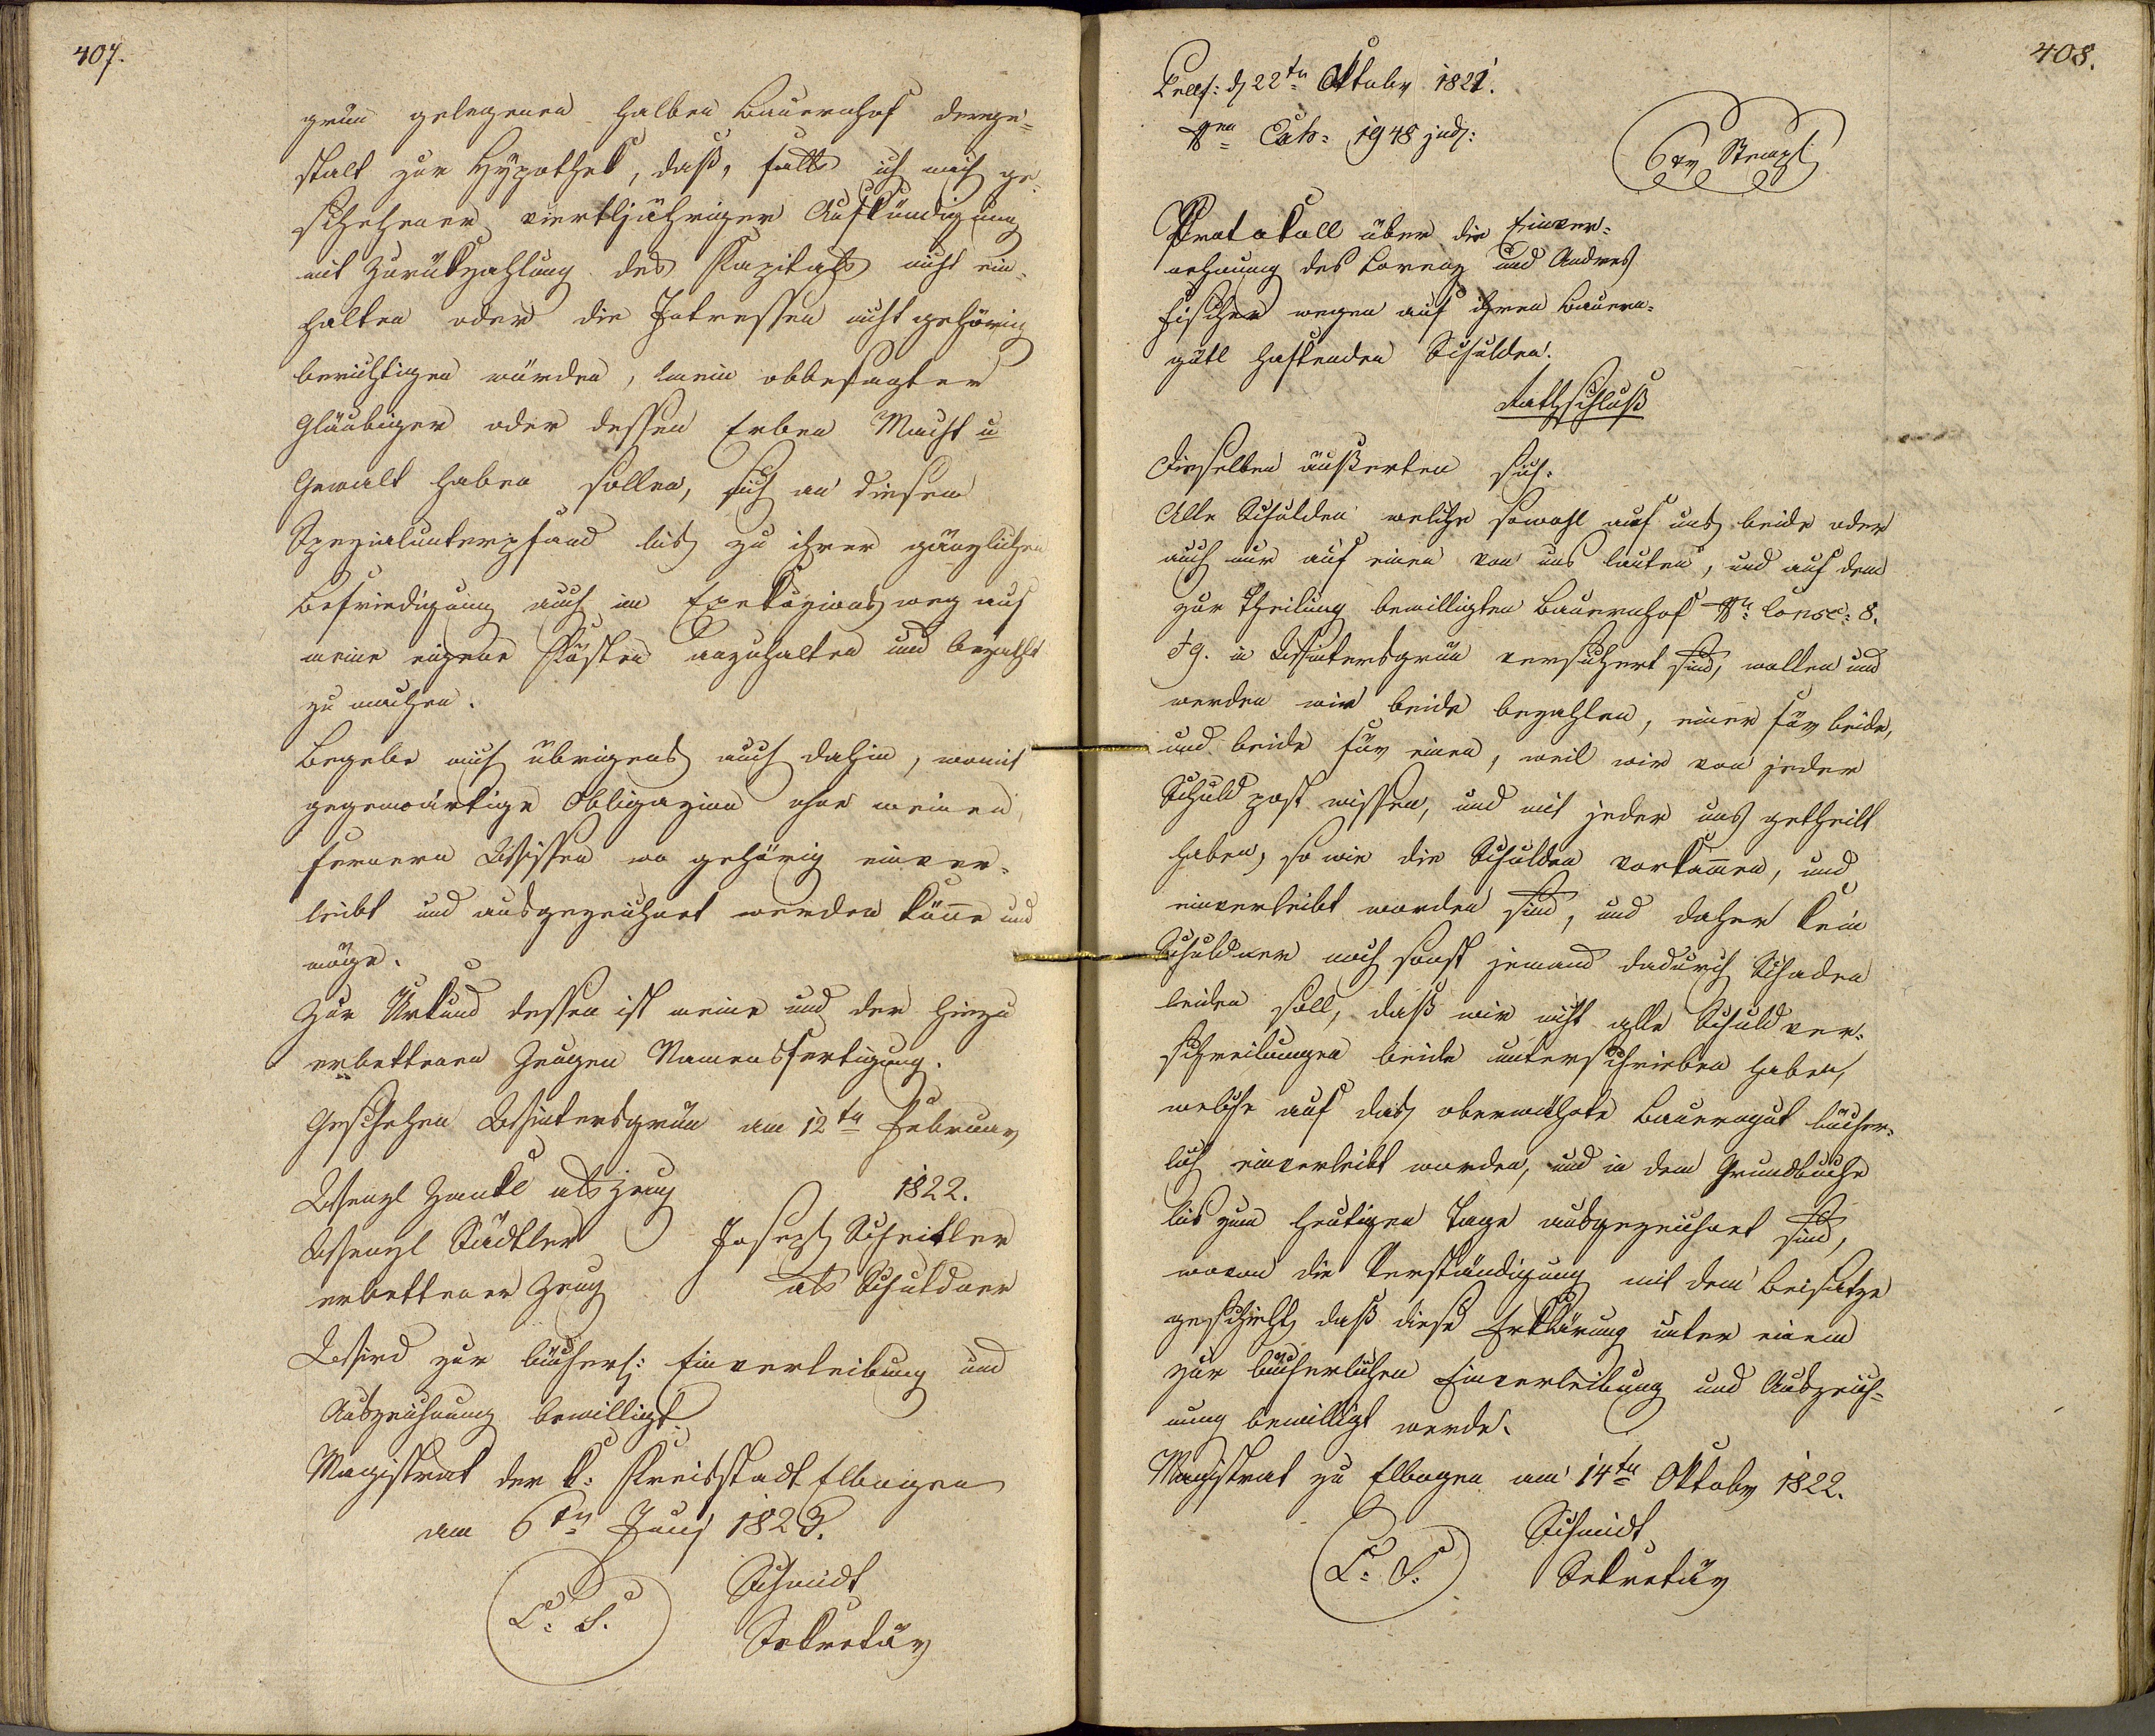 407.
grün gelegenen halben Bauernhof derge=
stalt zur Hypothek, daß, falls ich nach ge=
schehener vierteljähriger Aufkündigung
mit Zurükzahlung des Kapitals nicht ein=
halten oder die Intressen nicht gehörig
berichtigen würden, mein obbesagter
Gläubiger oder dessen Erben Macht u
Gewalt haben sollen, sich an diesem
Spezialunterpfand bis zu ihrer gänzlichen
Befriedigung auch im Exekuzionsweg auf
meine eigene Kösten anzuhalten und bezahlt
zu machen.
Begebe mich übrigens auch dahin, womit
gegenwärtige Obligazion ohne meinen
fernern Wissen wo gehörig einver=
leibt und ausgezeichnet werden könne und
möge.
Zur Urkund dessen ist meine und der hiezu
erbettenen Zeugen Namensfertigung.
Geschehen Wintersgrün am 12tn Februar
1822.
Wenzl Zankl als Zeug
Wenzl Städtler Joseph Scheitler
erbettener Zeug als Schuldner
Wird zur bücherl: Einverleibung und
Auszeichnung bewilligt.
Magistrat der k: Kreisstadt Elbogen
am 6tn Juny 1823.
Schmidt
L: S.
Sekretär
408.
d 22tn Oktober 1821.
Exh: 1948 jud:
6 xr Stempl
Protokoll über die Einver=
nehmung des Lorenz und Andreas
Fischer wegen auf ihren Bauern=
gütl haftenden Schulden.
Rathschluß
Dieselben äußerten sich:
Alle Schulden welche sowohl auf uns beide oder
auch nur auf einen von uns lauten, und auf dem
zur Theilung bewilligten Bauernhof Nr. Consc: 8.
in Wintersgrün versichert sind, wollen und
werden wir beide bezahlen, einer für beide,
und beide für einen, weil wir von jeder
Schuldpost wissen, und mit jeder uns getheilt
haben, so wie die Schulden vorkamen, und
einverleibt worden sind, und daher kein
Schuldner noch sonst jemand dadurch Schaden
leiden soll, daß wir nicht alle Schuldver=
schreibungen beide unterschrieben haben,
welche auf das oberwähnte Bauerngut bücher=
lich einverleibt worden, und in dem Grundbuche
bis zum heutigen Tage ausgezeichnet sind,
wovon die Verständigung mit dem Beisatze
geschieht, daß diese Erklärung unter einem
zur bücherlichen Einverleibung und Auszeich=
nung bewilligt werde.
Magistrat zu Elbogen am 14tn Oktober 1822.
Schmidt
L: S.
Sekretär